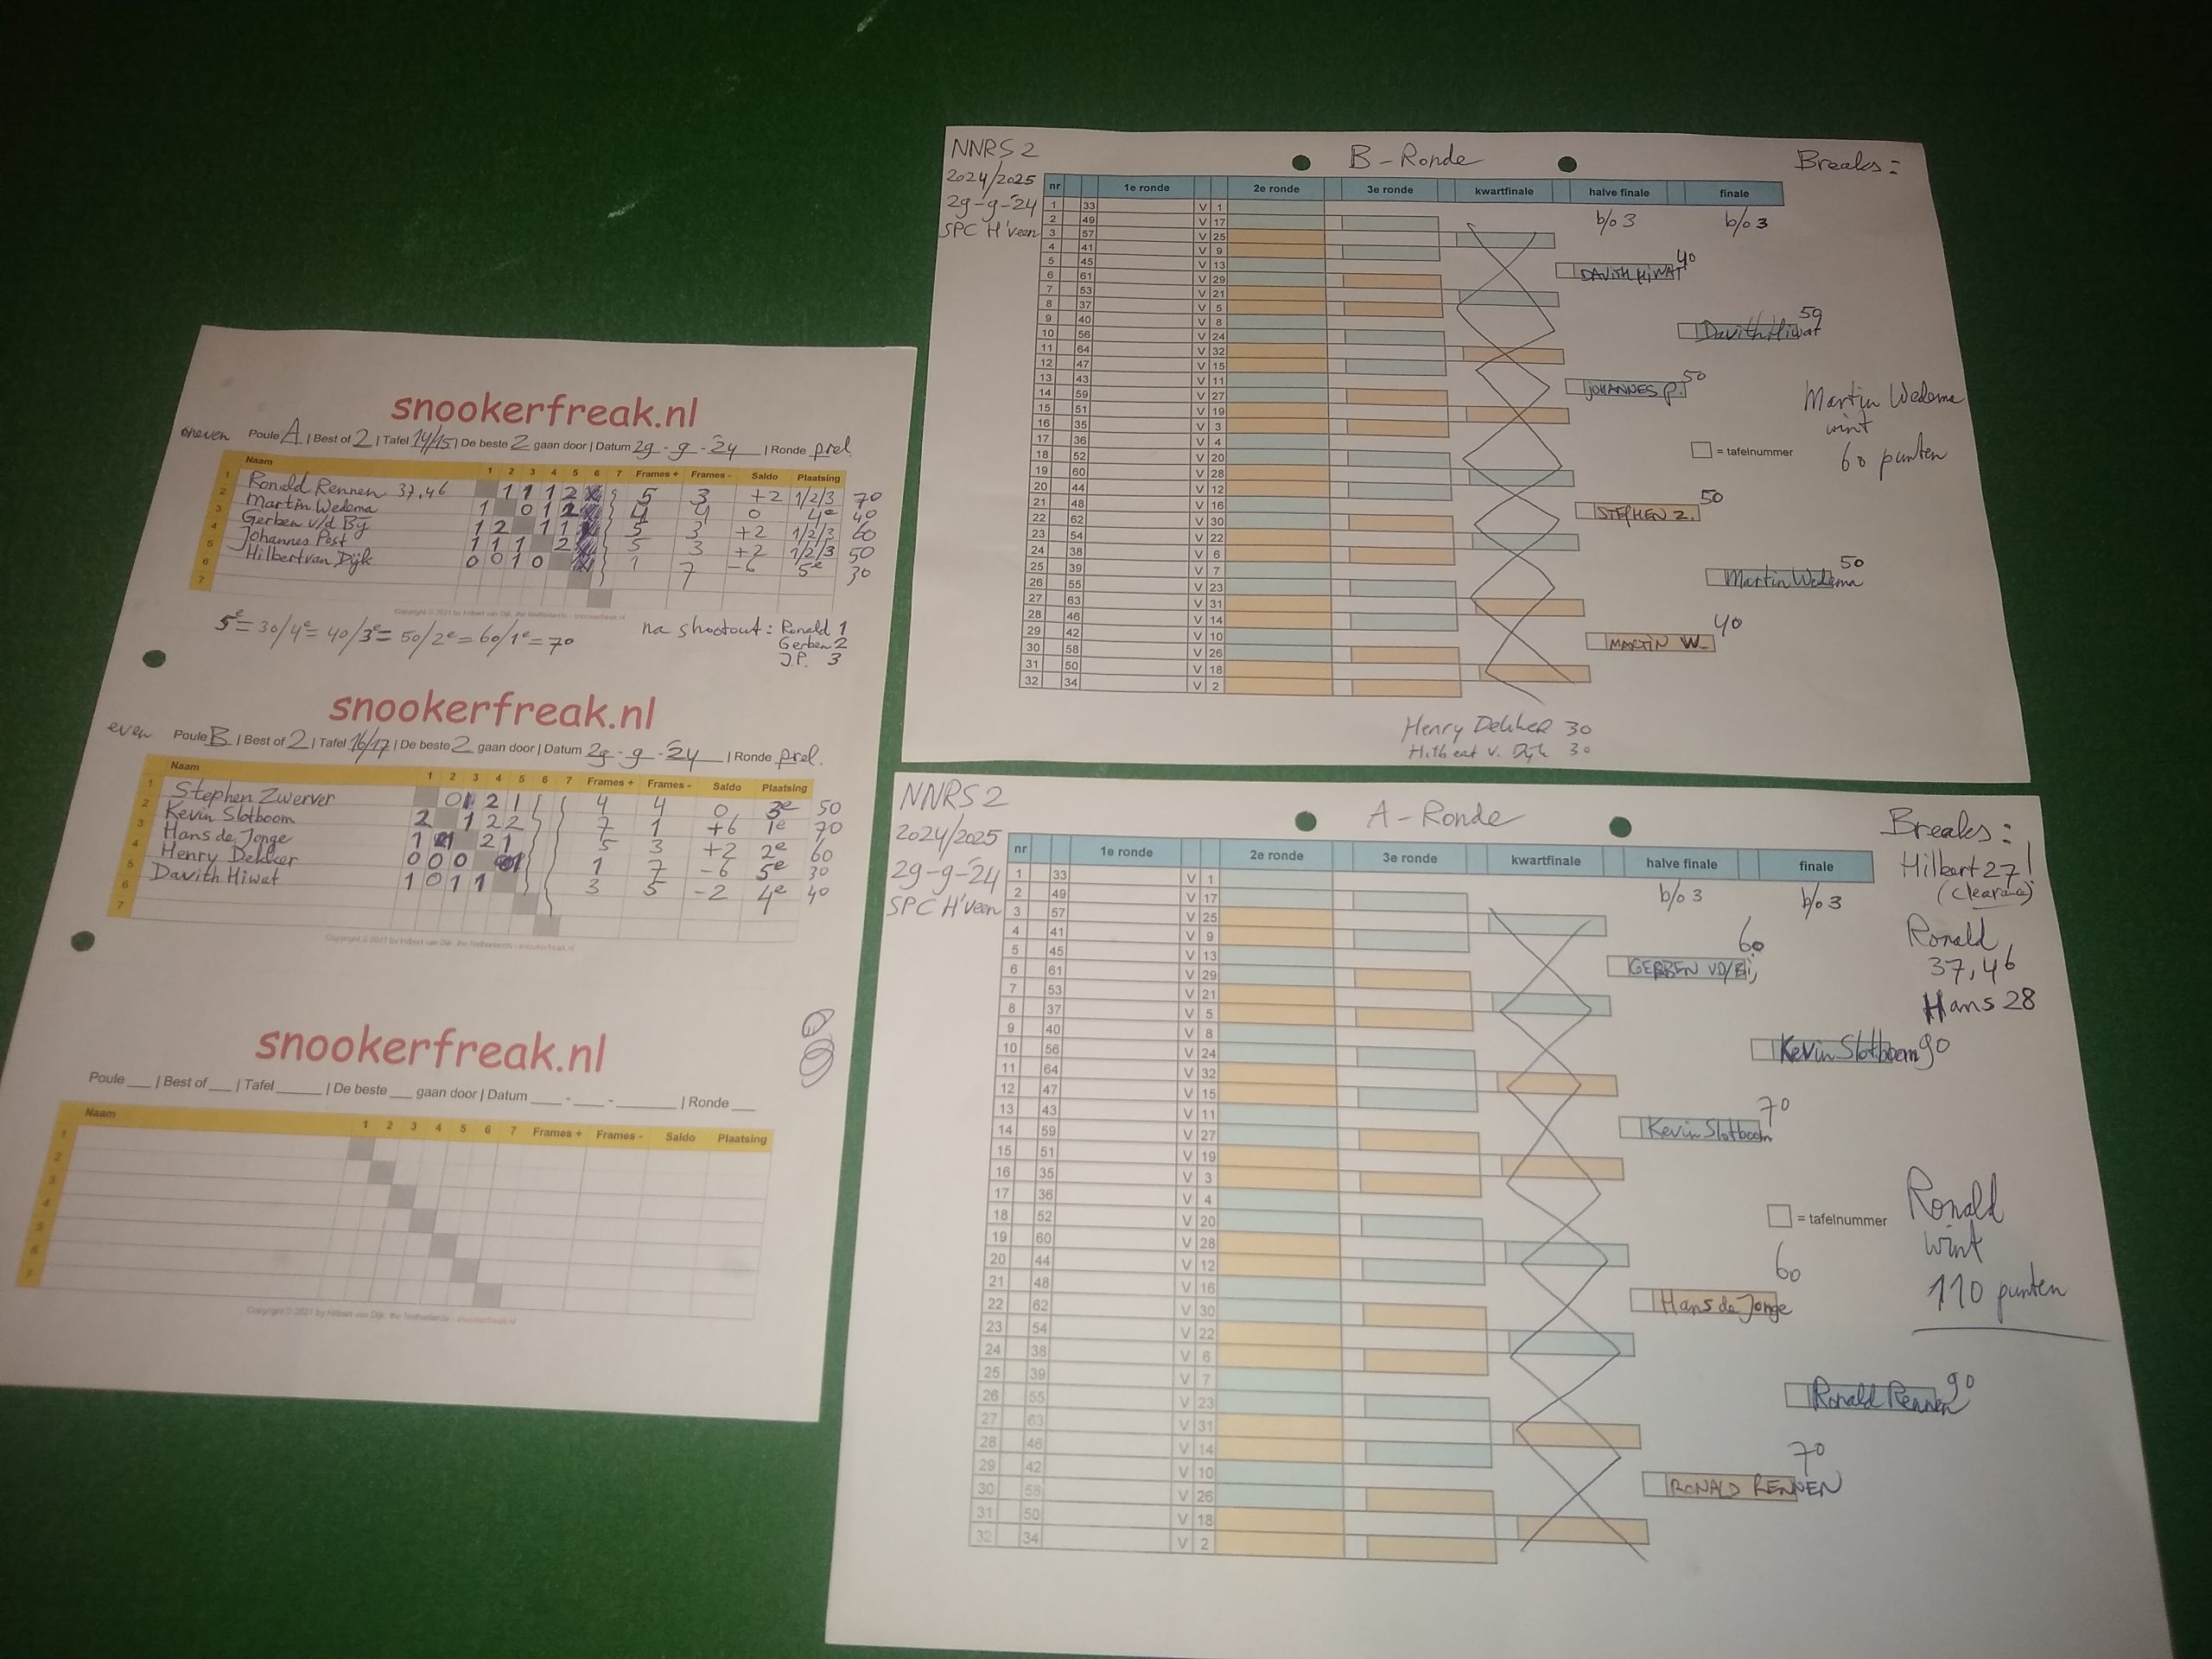 snookerfreak.nl
oneven Poule A | Best of 2 | Tafel 14/15 | De beste 2 gaan door | Datum 29 - 9 - '24 | Ronde prel.
Naam 1 2 3 4 5 6 7 Frames + Frames - Saldo Plaatsing
1 Ronald Rennen 37,46 1 1 1 2 5 3 +2 1/2/3 70
2 Martin Wedema 1 0 1 2 4 4 0 4e 40
3 Gerben v/d Bij 1 2 1 1 5 3 +2 1/2/3 60
4 Johannes Post 1 1 1 2 5 3 +2 1/2/3 50
5 Hilbert van Dijk 0 0 1 0 1 7 -6 5e 30
6
7
Copyright © 2021 by Hilbert van Dijk, the Netherlands - snookerfreak.nl
5e = 30/4e = 40/3e = 50/2e = 60/1e = 70
na shootout: Ronald 1
Gerben 2
J.P. 3
snookerfreak.nl
even Poule B | Best of 2 | Tafel 16/17 | De beste 2 gaan door | Datum 29 - 9 - '24 | Ronde prel.
Naam 1 2 3 4 5 6 7 Frames + Frames - Saldo Plaatsing
1 Stephen Zwerver 0 1 2 1 4 4 0 3e 50
2 Kevin Slotboom 2 1 2 2 7 1 +6 1e 70
3 Hans de Jonge 1 1 2 1 5 3 +2 2e 60
4 Henry Dekker 0 0 0 1 1 7 -6 5e 30
5 Davith Hiwat 1 0 1 1 3 5 -2 4e 40
6
7
Copyright © 2021 by Hilbert van Dijk, the Netherlands - snookerfreak.nl
snookerfreak.nl
Poule ___ | Best of ___ | Tafel ______ | De beste ___ gaan door | Datum ____ - ____ - ________ | Ronde ___
Naam 1 2 3 4 5 6 7 Frames + Frames - Saldo Plaatsing
1
2
3
4
5
6
7
Copyright © 2021 by Hilbert van Dijk, the Netherlands - snookerfreak.nl
NNRS 2
2024/2025
29-9-'24
SPC H'Veen
B - Ronde
Breaks:
nr 1e ronde 2e ronde 3e ronde kwartfinale halve finale finale
b/o 3 b/o 3
1 33 V 1
2 49 V 17
3 57 V 25
4 41 V 9
5 45 V 13
6 61 V 29
7 53 V 21
8 37 V 5
9 40 V 8
10 56 V 24
11 64 V 32
12 47 V 15
13 43 V 11
14 59 V 27
15 51 V 19
16 35 V 3
17 36 V 4
18 52 V 20
19 60 V 28
20 44 V 12
21 48 V 16
22 62 V 30
23 54 V 22
24 38 V 6
25 39 V 7
26 55 V 23
27 63 V 31
28 46 V 14
29 42 V 10
30 58 V 26
31 50 V 18
32 34 V 2
DAVITH HIWAT 40
Davith Hiwat 50
JOHANNES P. 50
Martin Wedema
wint
60 punten
= tafelnummer
STEPHEN Z. 50
Martin Wedema 50
MARTIN W. 40
Henry Dekker 30
Hilbert v. Dijk 30
NNRS 2
2024/2025
29-9-'24
SPC H'Veen
A - Ronde
Breaks:
Hilbert 27!
(clearance)
Ronald
37,46
Hans 28
nr 1e ronde 2e ronde 3e ronde kwartfinale halve finale finale
b/o 3 b/o 3
1 33 V 1
2 49 V 17
3 57 V 25
4 41 V 9
5 45 V 13
6 61 V 29
7 53 V 21
8 37 V 5
9 40 V 8
10 56 V 24
11 64 V 32
12 47 V 15
13 43 V 11
14 59 V 27
15 51 V 19
16 35 V 3
17 36 V 4
18 52 V 20
19 60 V 28
20 44 V 12
21 48 V 16
22 62 V 30
23 54 V 22
24 38 V 6
25 39 V 7
26 55 V 23
27 63 V 31
28 46 V 14
29 42 V 10
30 58 V 26
31 50 V 18
32 34 V 2
GERBEN V.D/Bij 60
Kevin Slotboom 90
Kevin Slotboom 70
= tafelnummer
Ronald
wint
110 punten
Hans de Jonge 60
Ronald Rennen 90
RONALD RENNEN 70